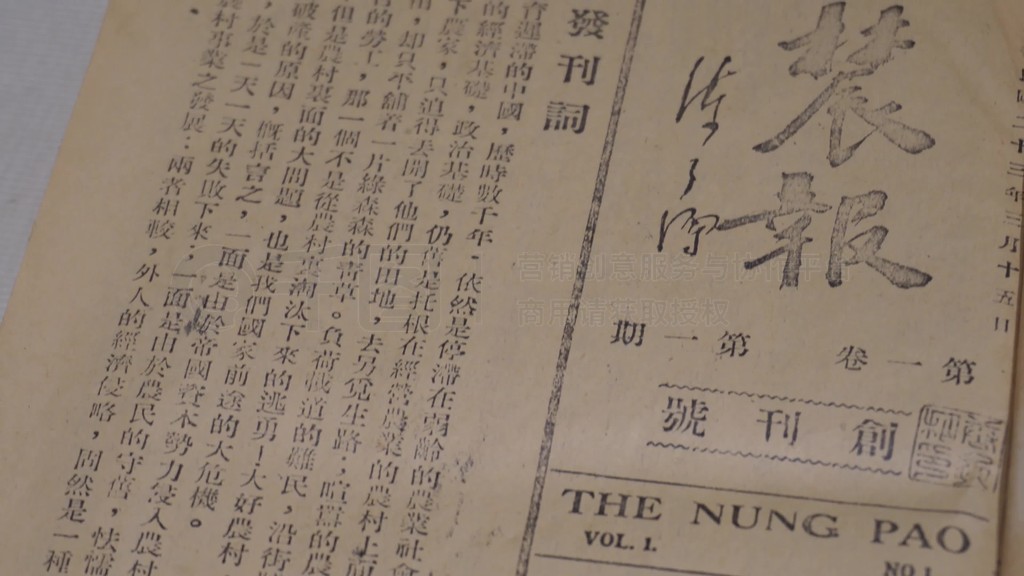 農報
第一卷 第一期
創刊號
THE NUNG PAO
VOL. 1.
NO.1
二十三年三月十五日
發刊詞
育遲滯的中國，歷時數千年，依然是停滯在弱齡的農業社會
的經濟基礎，政治基礎，仍舊是托根在經營農業的農村上面
下農家，只迫得去開了他們的田地，去另覓生路，喧囂的農
却只不鋪着一片綠森森的害草。負荷載道的難民，沿街
的勞工，那一個不是從農村裏淘汰下來的逃勇！大好農村
但是農村裏面的大問題，也是我們國家前途的大危機。
破產的原因，概括言之，一面是由於帝國資本勢力侵入農村
，於是一天一天的失敗下來，一面是由於農民的守舊，怏懦
農村事業之發展．兩者相較，外人的經濟侵略，固然是一種